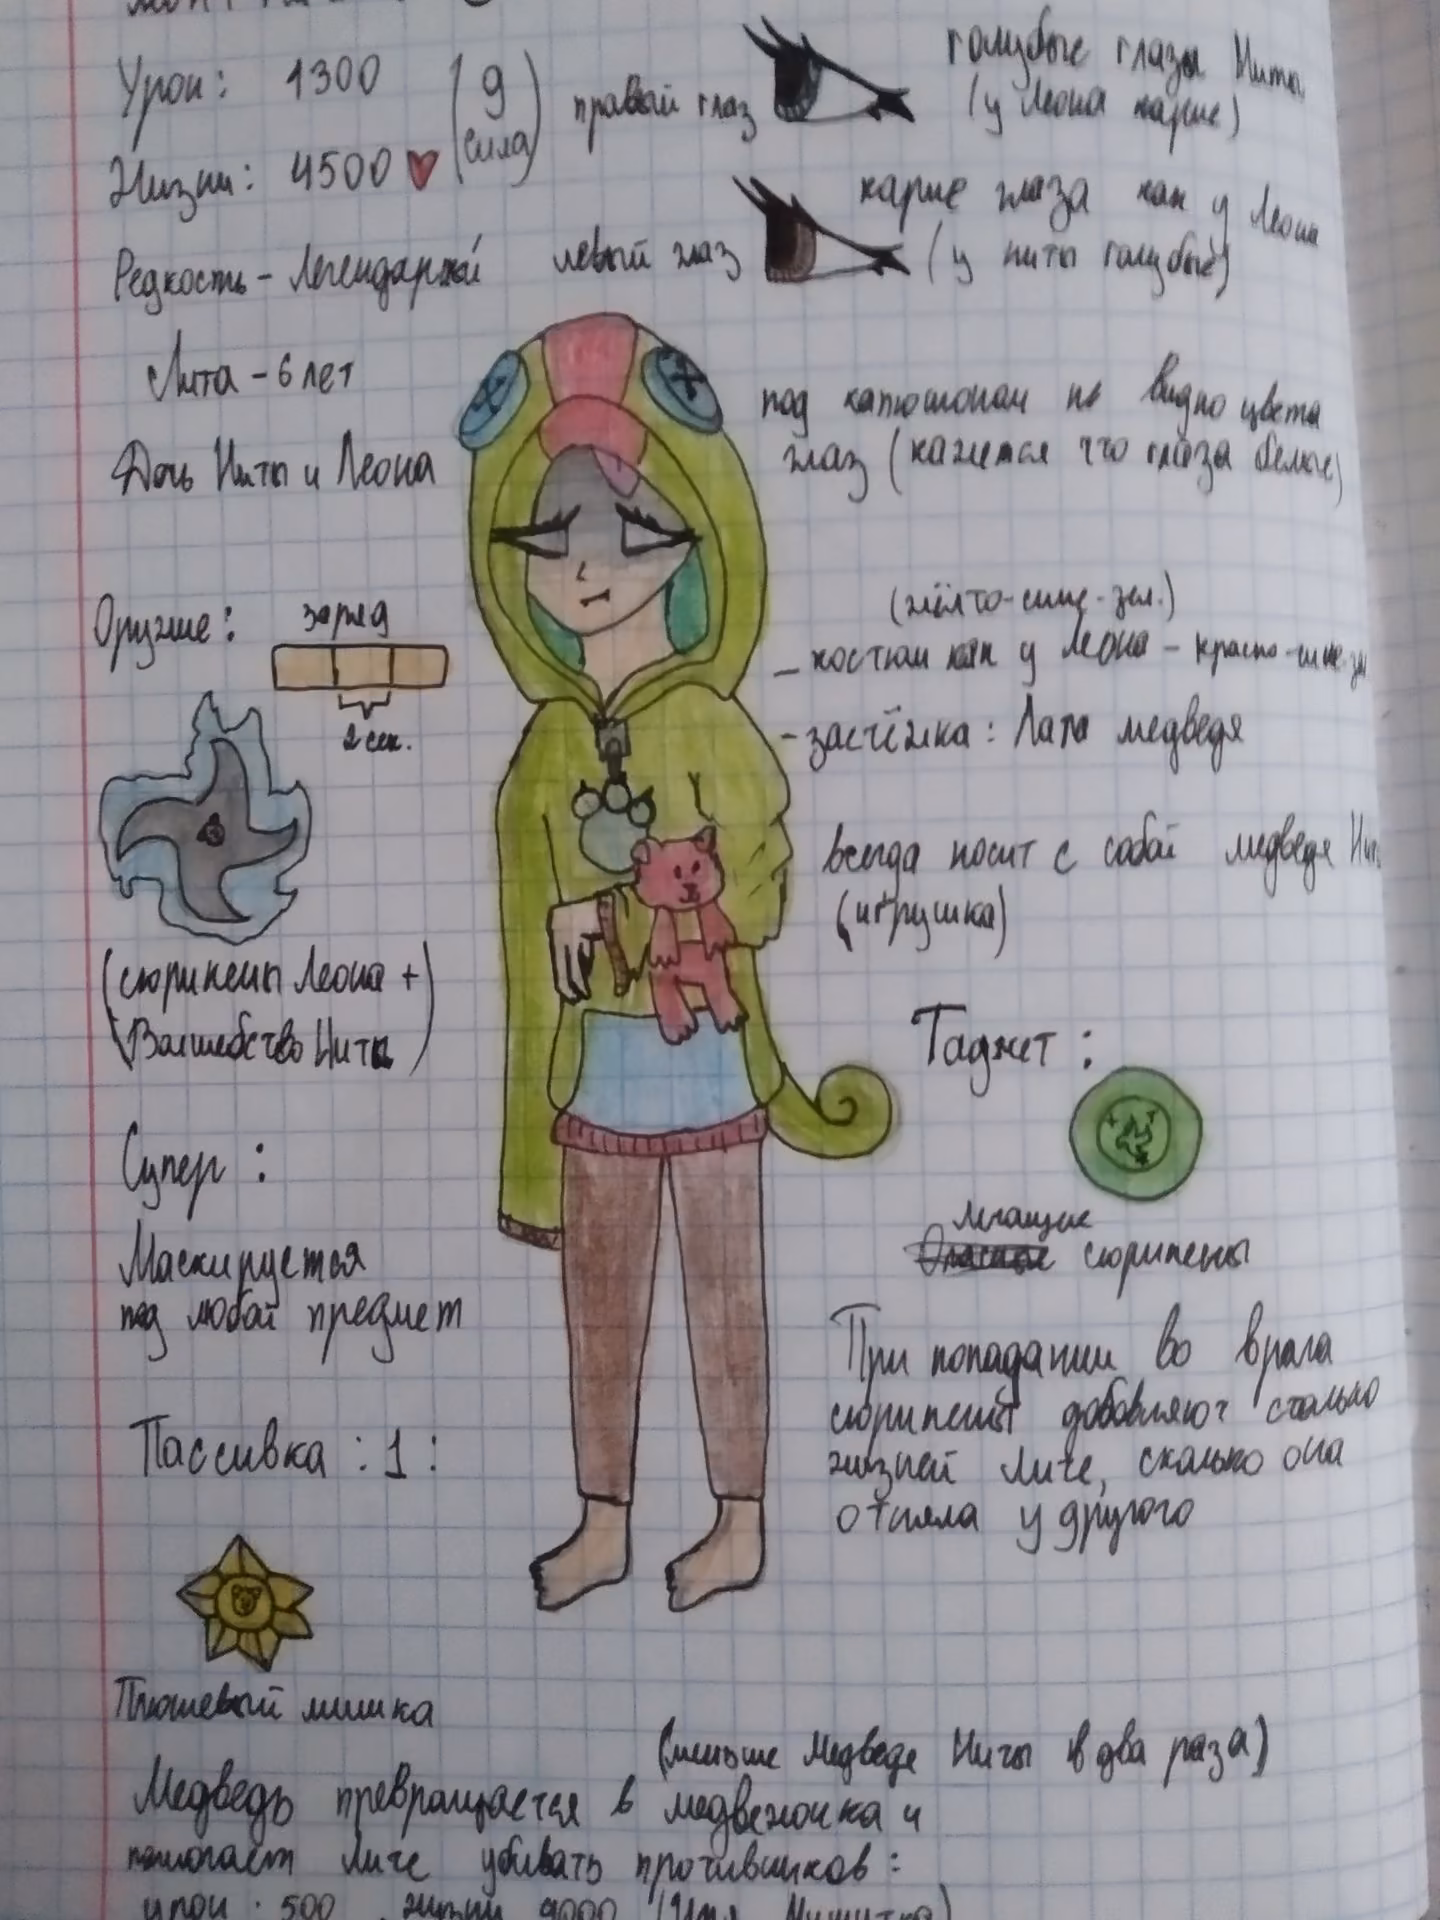 Урон: 1300
(9 сила)
Жизни: 4500
Редкость - Легендарный
Лита - 6 лет
Дочь Ниты и Леона
правый глаз
голубые глаза Ниты
(у Леона карие)
левый глаз
карие глаза как у Леона
(у Ниты голубые)
под капюшоном не видно цвета
глаз (кажется что глаза белые)
Оружие:
заряд
2 сек.
(сюрикены Леона +
Волшебство Ниты)
(жёлто-сине-зел.)
- костюм как у Леона - красно-сине-з
- застёжка: Лапа медведя
всегда носит с собой медведя Ниты
(игрушка)
Гаджет:
Летащие
сюрикены
При попадании во врага
сюрикены добавляют столько
жизней Лите, сколько она
отняла у другого
Супер:
Маскируется
под любой предмет
Пассивка: 1:
Плюшевый мишка
(меньше Медведя Ниты в два раза)
Медведь превращается в медвежонка и
помогает Лите убивать противников:
урон: 500, жизни 4000 (Имя